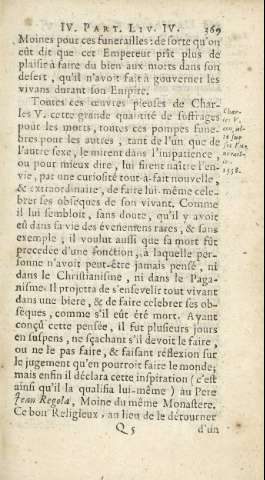 IV. PART. LIV. IV. 369
Moines pour ces funerailles: de sorte qu'on
eût dit que cet Empereur prît plus de
plaisir à faire du bien aux morts dans son
desert, qu'il n'avoit fait à gouverner les
vivans durant son Empire.
Toutes ces œuvres pieuses de Char-
les V. cette grande quantité de suffrages
pour les morts, toutes ces pompes fune-
bres pour les autres, tant de l'un que de
l'autre sexe, le mirent dans l'impatience,
ou pour mieux dire, lui firent naître l'en-
vie, par une curiosité tout-à-fait nouvelle,
& extraordinaire, de faire lui-même cele-
brer ses obséques de son vivant. Comme
il lui sembloit, sans doute, qu'il y avoit
eû dans sa vie des évenemens rares, & sans
exemple, il voulut aussi que sa mort fût
precedée d'une fonction, à laquelle per-
sonne n'avoit peut-être jamais pensé, ni
dans le Christianisme, ni dans le Paga-
nisme. Il projetta de s'ensevelir tout vivant
dans une biere, & de faire celebrer ses ob-
séques, comme s'il eût été mort. Ayant
conçû cette pensée, il fut plusieurs jours
en suspens, ne sçachant s'il devoit le faire,
ou ne le pas faire, & faisant réflexion sur
le jugement qu'en pourroit faire le monde;
mais enfin il déclara cette inspiration (c'est
ainsi qu'il la qualifia lui-même) au Pere
Jean Regola, Moine du même Monastere.
Ce bon Religieux, au lieu de le détourner
Q 5 d'un
Char-
les V.
1558.